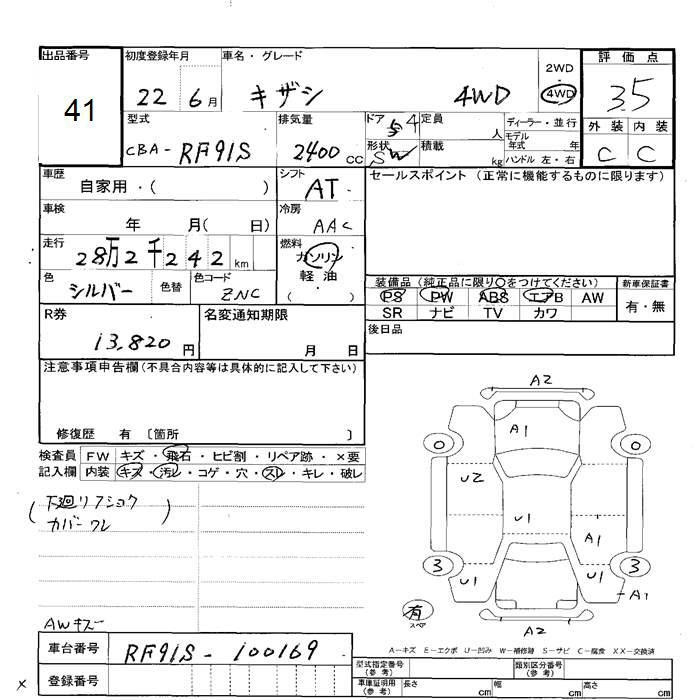 出品番号 初度登録年月 車名・グレード 2WD 評価点
41 22 6月 キザシ 4WD 4WD 3.5
型式 排気量 ドア 4 定員 人 ディーラー・並行 外装 内装
CBA- RF91S 2400 CC 形状 SW 積載 kg モデル年式 年 C C
ハンドル 左・右
車歴 自家用・( ) シフト AT セールスポイント (正常に機能するものに限ります)
車検 年 月( 日) 冷房 AAC
走行 28万2千242km 燃料 ガソリン
軽・油
( )
色 シルバー 色替 色コード ZNC
装備品 (純正品に限り○をつけてください) 新車保証書
PS PW ABS エアB AW 有・無
SR ナビ TV カワ
R券 13,820円 名変通知期限 月 日 後日品
注意事項申告欄(不具合内容等は具体的に記入して下さい)
修復歴 有 〔箇所 〕
検査員 FW キズ・飛石・ヒビ割・リペア跡・×要
記入欄 内装 キズ・汚レ・コゲ・穴・スレ・キレ・破レ
(下廻リフショク)
カバーワレ
AWキズ
A2
A1
0 0
U2
U1
A1
3 3
U1 U1
A1
有
スペア
A2
A−キズ E−エクボ U−凹み W−補修跡 S−サビ C−腐食 XX−交換済
車台番号 RF91S - 100169
登録番号
型式指定番号(参考) 類別区分番号(参考)
車庫証明用(参考) 長さ cm 幅 cm 高さ cm
×